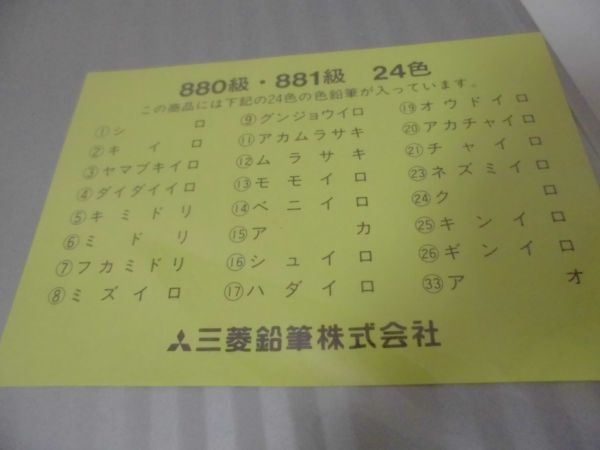 880級・881級 24色
この商品には下記の24色の色鉛筆が入っています。
①シロ
②キイロ
③ヤマブキイロ
④ダイダイイロ
⑤キミドリ
⑥ミドリ
⑦フカミドリ
⑧ミズイロ
⑨グンジョウイロ
⑪アカムラサキ
⑫ムラサキ
⑬モモイロ
⑭ベニイロ
⑮アカ
⑯シュイロ
⑰ハダイロ
⑲オウドイロ
⑳アカチャイロ
㉑チャイロ
㉓ネズミイロ
㉔クロ
㉕キンイロ
㉖ギンイロ
㉝アオ
三菱鉛筆株式会社